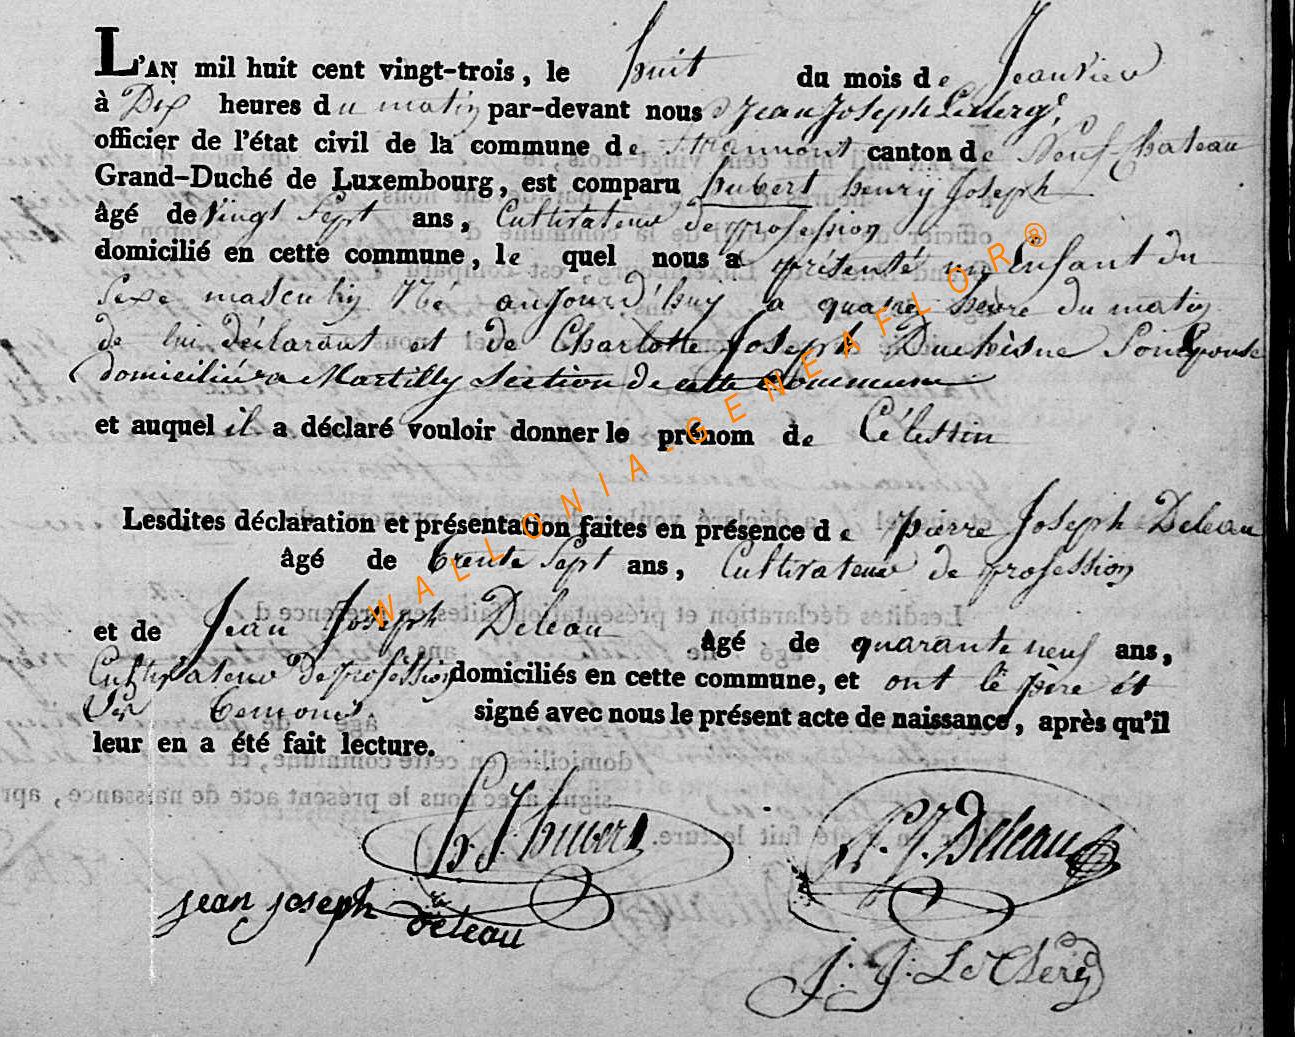 L'AN mil huit cent vingt-trois, le huit du mois de Jeanvier
à Dix heures du matin par-devant nous Jean Joseph Leclercq,
officier de l'état civil de la commune de Straimont canton de Neuf-Chateau
Grand-Duché de Luxembourg, est comparu hubert henry Joseph
âgé de vingt Sept ans, Cultivateur de profession
domicilié en cette commune, le quel nous a présenté un Enfant du
Sexe masculin Né aujourd'huy a quatre heure du matin
de lui déclarant et de Charlotte Joseph Duchêsne Son Epouse
domiciliée a Martilly Section de cette Commune
et auquel il a déclaré vouloir donner le prénom de Célestin
Lesdites déclaration et présentation faites en présence de pierre Joseph Deleau
âgé de trente Sept ans, Cultivateur de profession
et de Jean Joseph Deleau âgé de quarante neuf ans,
Cultivateur De profession domiciliés en cette commune, et ont le père et
les temoins signé avec nous le présent acte de naissance, après qu'il
leur en a été fait lecture.
h. J. hubert
P. J. Deleau
jean joseph deleau
J: J: Le Clerq
WALLONIA.GENEAFLOR®